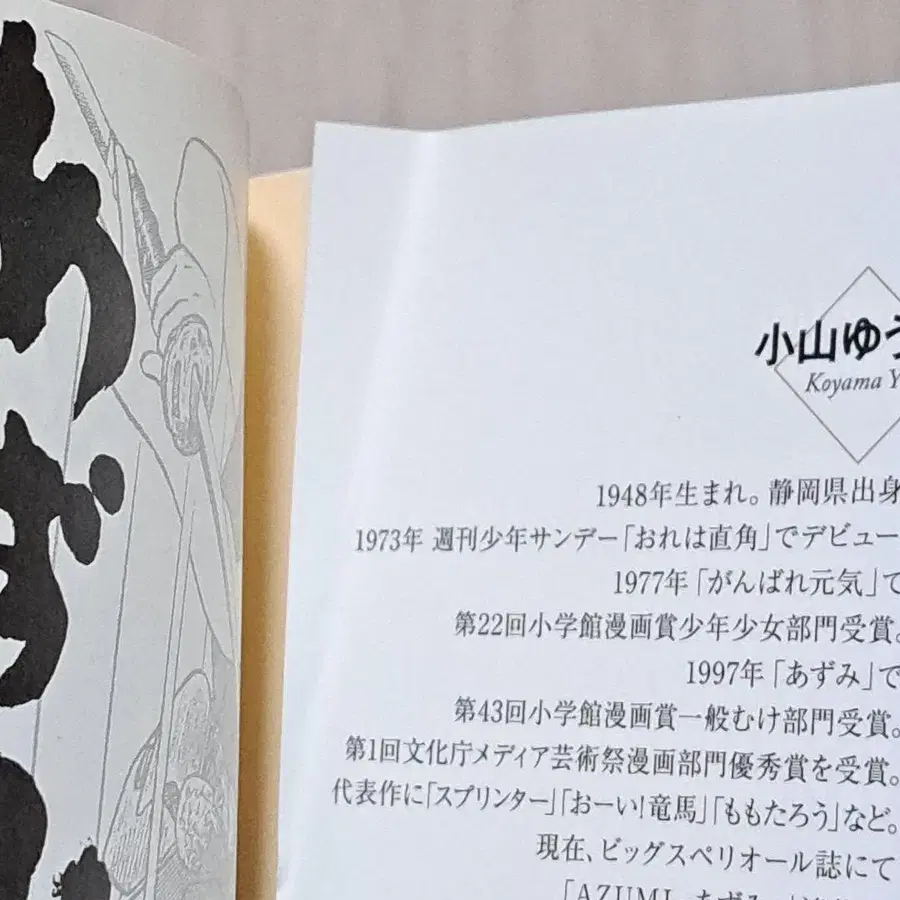 あず
小山ゆう
Koyama Y
1948年生まれ。静岡県出身
1973年 週刊少年サンデー「おれは直角」でデビュー
1977年「がんばれ元気」で
第22回小学館漫画賞少年少女部門受賞。
1997年「あずみ」で
第43回小学館漫画賞一般むけ部門受賞。
第1回文化庁メディア芸術祭漫画部門優秀賞を受賞。
代表作に「スプリンター」「おーい!竜馬」「ももたろう」など。
現在、ビッグスペリオール誌にて
「AZUMI